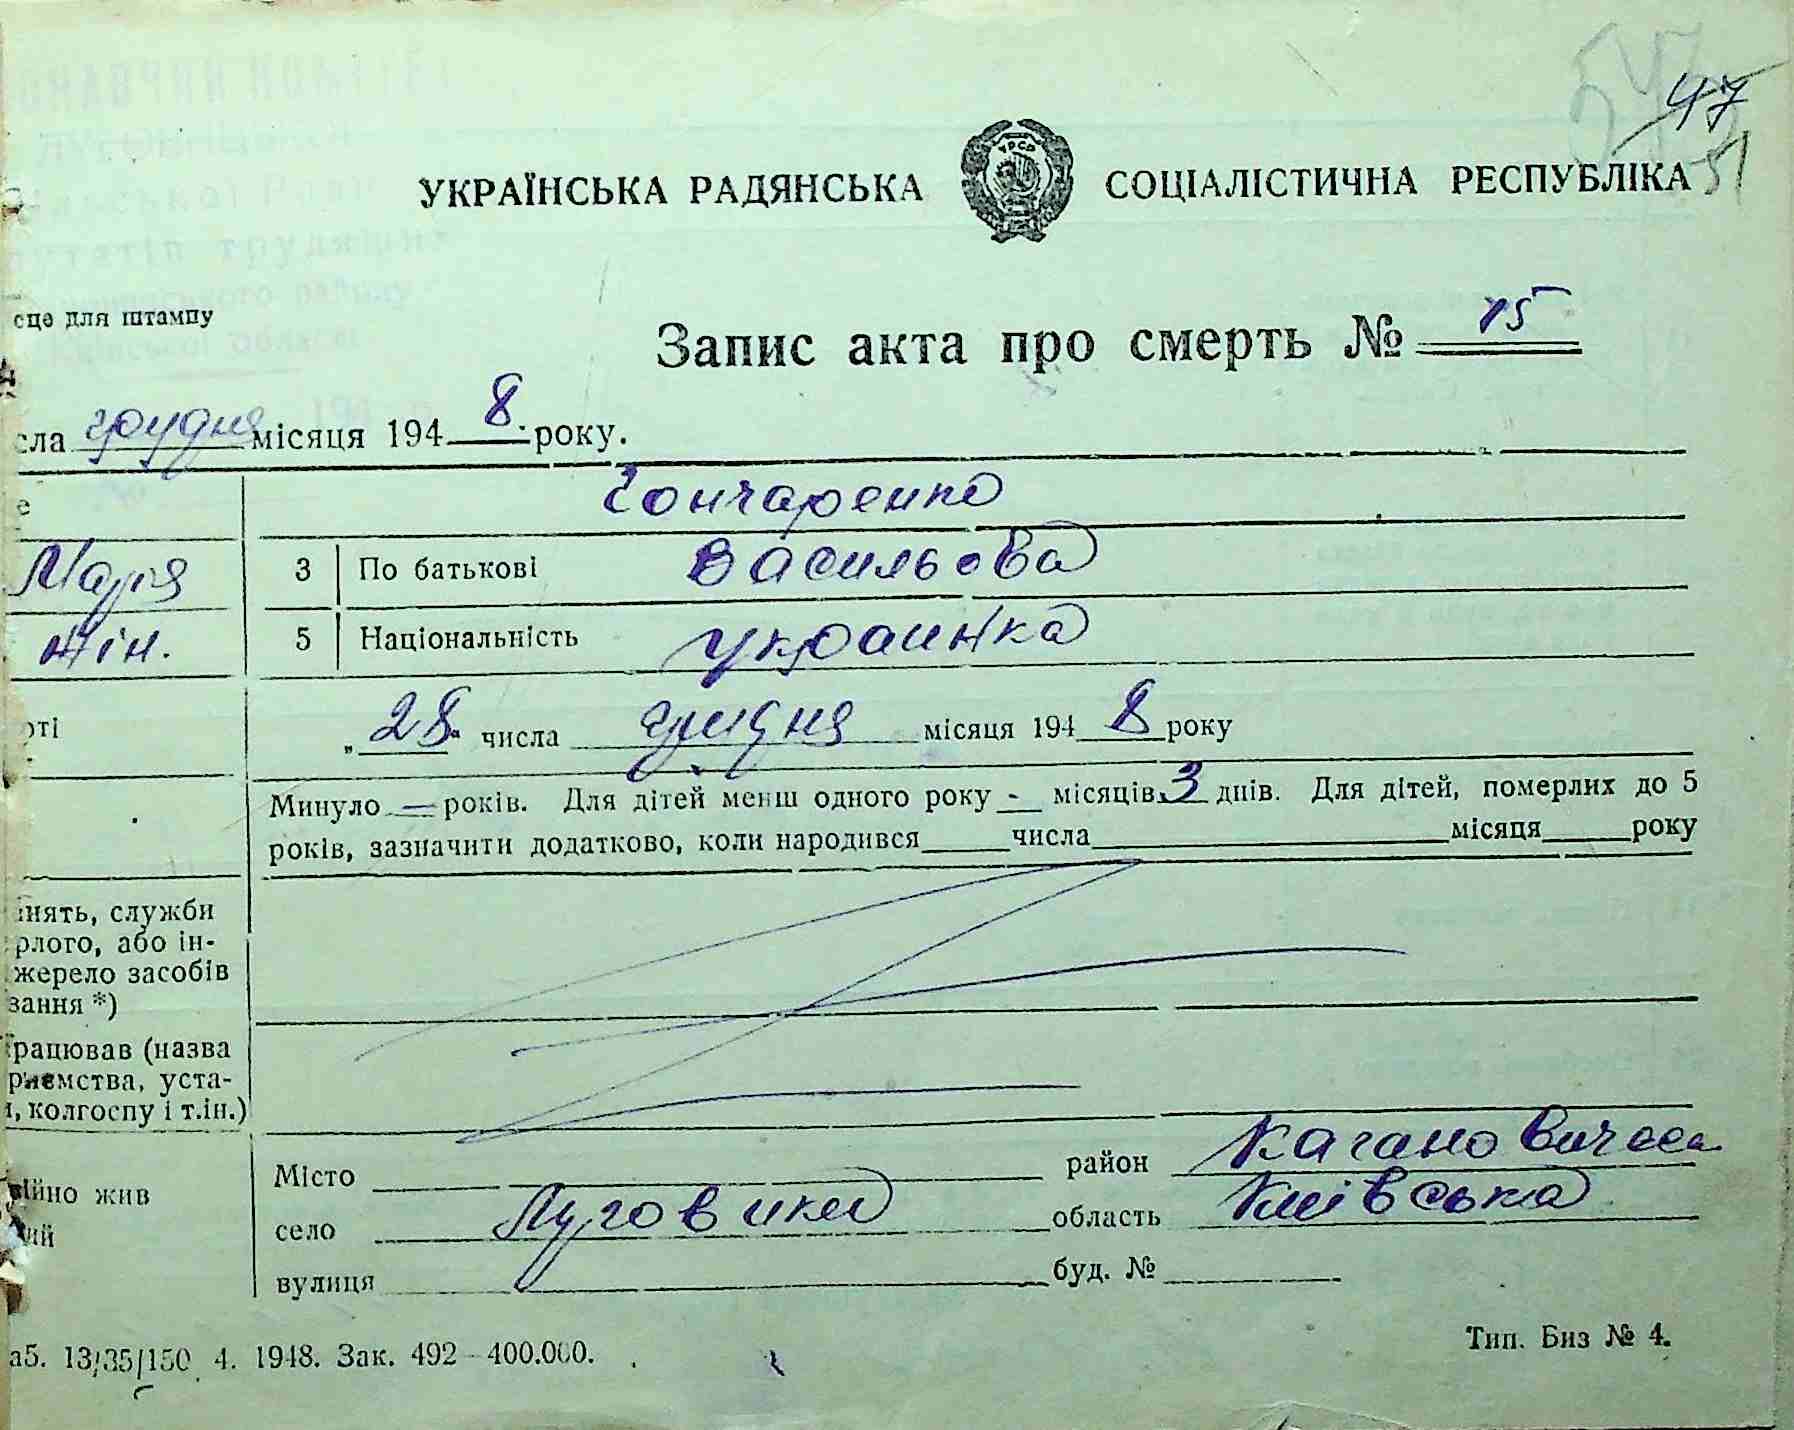 47
51
УКРАЇНСЬКА РАДЯНСЬКА СОЦІАЛІСТИЧНА РЕСПУБЛІКА
УРСР
сце для штампу
Запис акта про смерть № 15
сла грудня місяця 1948 року.
е Гончаренко
Марія 3 По батькові Васильова
жін. 5 Національність украинка
рті „28“ числа грудня місяця 1948 року
Минуло — років. Для дітей менш одного року - місяців 3 днів. Для дітей, померлих до 5
років, зазначити додатково, коли народився числа місяця року
нять, служби
рлого, або ін-
жерело засобів
вання *)
рацював (назва
риємства, уста-
и, колгоспу і т.ін.)
Місто район
ійно жив
село Луговики область Київська
ий
вулиця буд. №
аб. 13/35/150 4. 1948. Зак. 492—400.000.
Тип. Биз № 4.